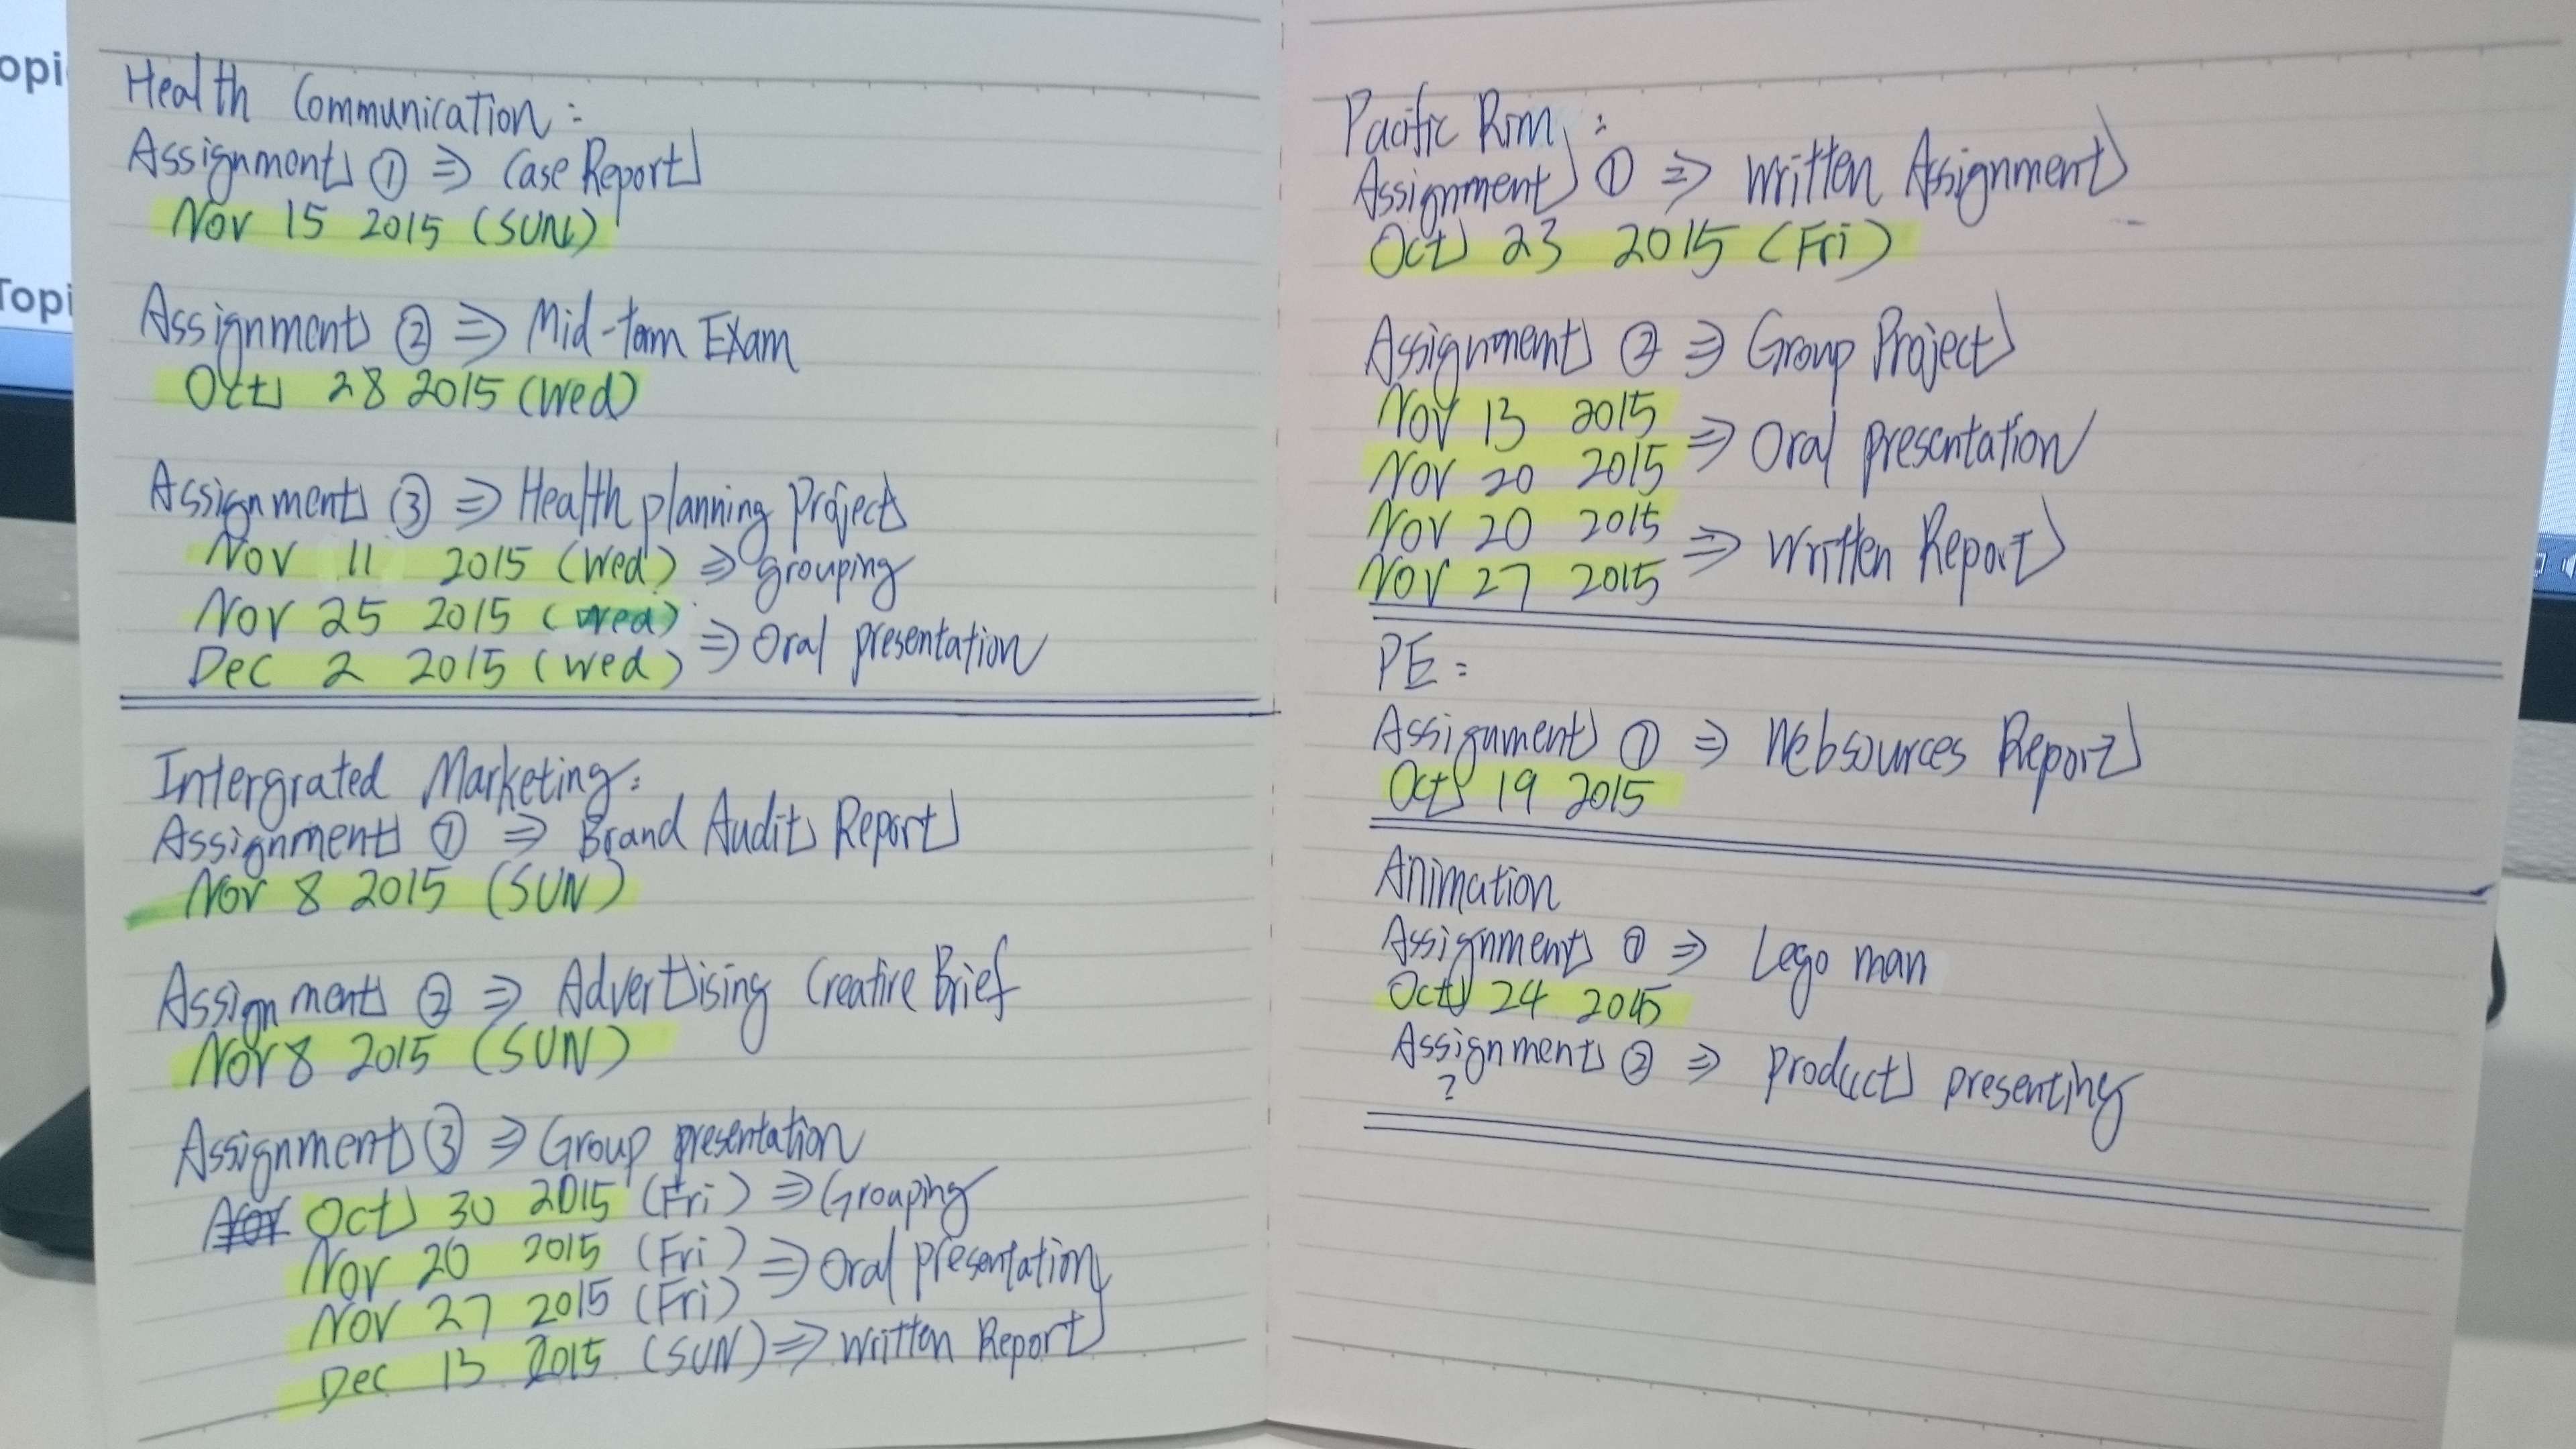 opi
Topi
Health Communication :
Assignment ① ⇒ Case Report
Nov 15 2015 (SUN)
Assignment ② ⇒ Mid-term Exam
Oct 28 2015 (Wed)
Assignment ③ ⇒ Health planning Project
Nov 11 2015 (Wed) ⇒ grouping
Nov 25 2015 (Wed)
Dec 2 2015 (Wed) ⇒ Oral presentation
Intergrated Marketing:
Assignment ① ⇒ Brand Audit Report
Nov 8 2015 (SUN)
Assignment ② ⇒ Advertising Creative Brief
Nov 8 2015 (SUN)
Assignment ③ ⇒ Group presentation
Nov Oct 30 2015 (Fri) ⇒ Grouping
Nov 20 2015 (Fri) ⇒ Oral presentation
Nov 27 2015 (Fri)
Dec 13 2015 (SUN) ⇒ Written Report
Pacific Rim :
Assignment ① ⇒ Written Assignment
Oct 23 2015 (Fri)
Assignment ② ⇒ Group Project
Nov 13 2015
Nov 20 2015 ⇒ Oral presentation
Nov 20 2015
Nov 27 2015 ⇒ Written Report
PE :
Assignment ① ⇒ Websources Report
Oct 19 2015
Animation
Assignment ① ⇒ Lego man
Oct 24 2015
Assignment ② ⇒ Product presenting
?